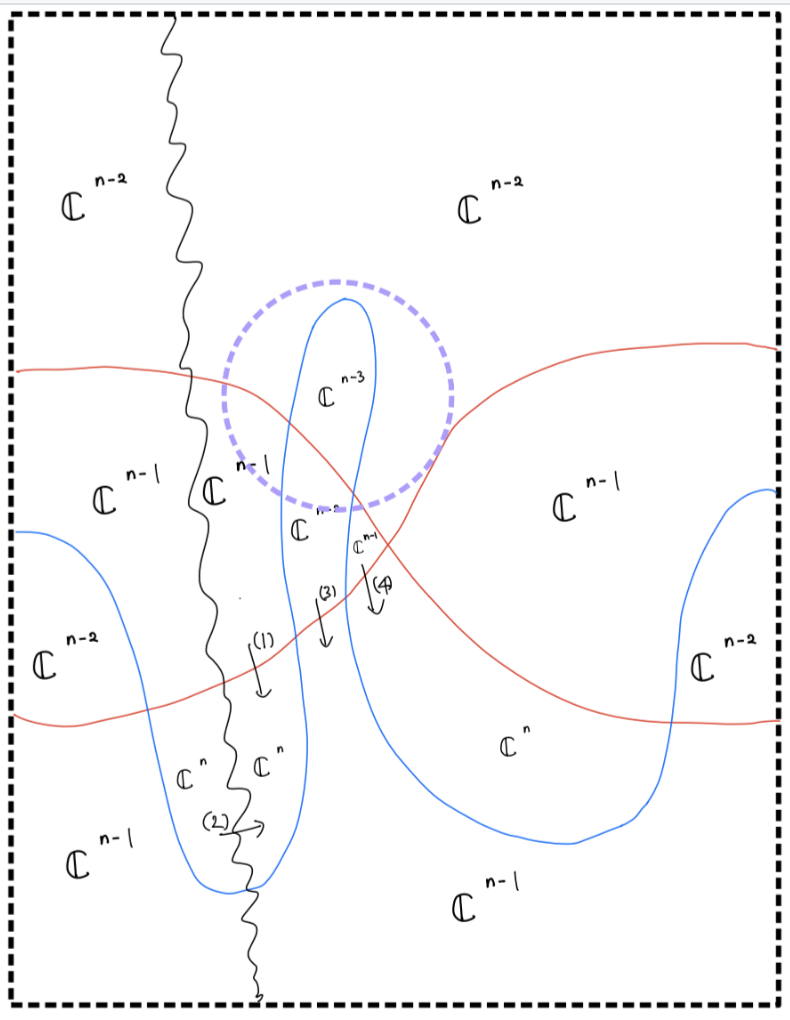 ℂⁿ⁻²
ℂⁿ⁻²
ℂⁿ⁻³
ℂⁿ⁻¹
ℂⁿ⁻¹
ℂⁿ⁻¹
ℂⁿ⁻²
ℂⁿ⁻¹
(3)
(4)
(1)
ℂⁿ⁻²
ℂⁿ⁻²
ℂⁿ
ℂⁿ
ℂⁿ
(2)
ℂⁿ⁻¹
ℂⁿ⁻¹